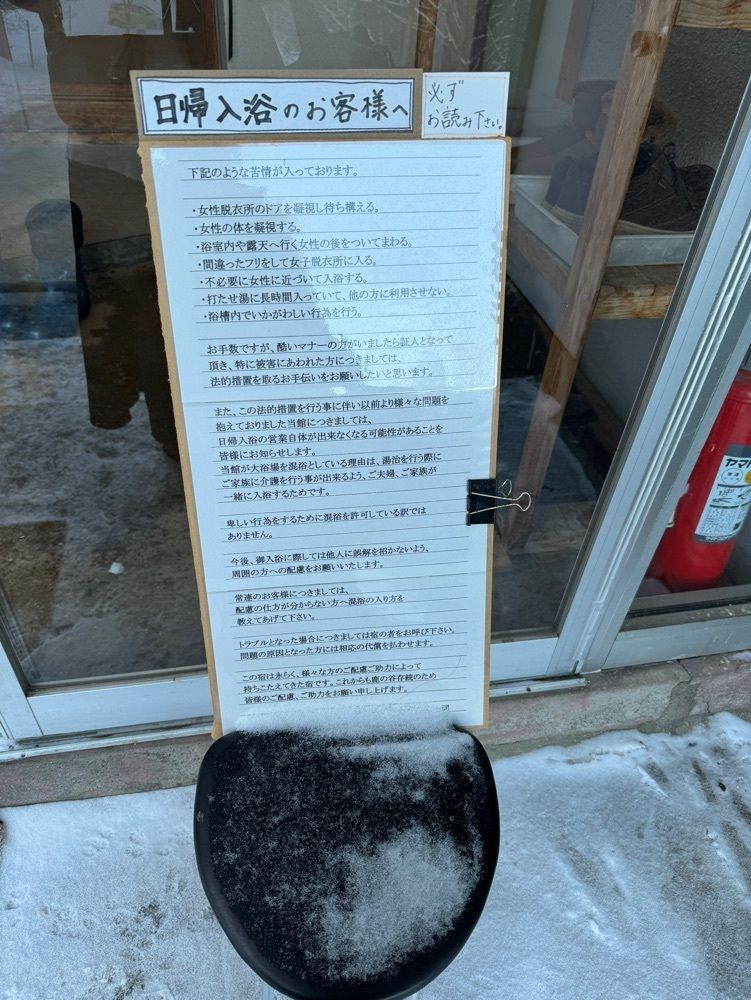 日帰入浴のお客様へ
必ず
お読み下さい。
下記のような苦情が入っております。
・女性脱衣所のドアを凝視し待ち構える。
・女性の体を凝視する。
・浴室内や露天へ行く女性の後をついてまわる。
・間違ったフリをして女子脱衣所に入る。
・不必要に女性に近づいて入浴する。
・打たせ湯に長時間入っていて、他の方に利用させない。
・浴槽内でいかがわしい行為を行う。
お手数ですが、酷いマナーの方がいましたら証人となって
頂き、特に被害にあわれた方につきましては、
法的措置を取るお手伝いをお願いしたいと思います。
また、この法的措置を行う事に伴い以前より様々な問題を
抱えておりました当館につきましては、
日帰入浴の営業自体が出来なくなる可能性があることを
皆様にお知らせします。
当館が大浴場を混浴としている理由は、湯治を行う際に
ご家族に介護を行う事が出来るよう、ご夫婦、ご家族が
一緒に入浴するためです。
卑しい行為をするために混浴を許可している訳では
ありません。
今後、御入浴に際しては他人に誤解を招かないよう、
周囲の方への配慮をお願いいたします。
常連のお客様につきましては、
配慮の仕方が分からない方へ混浴の入り方を
教えてあげて下さい。
トラブルとなった場合につきましては宿の者をお呼び下さい。
問題の原因となった方には相応の代償を払わせます。
この宿は永らく、様々な方のご配慮ご助力によって
持ちこたえてきた宿です。これからも鹿の谷存続のため
皆様のご配慮、ご助力をお願い申し上げます。
ヤマ